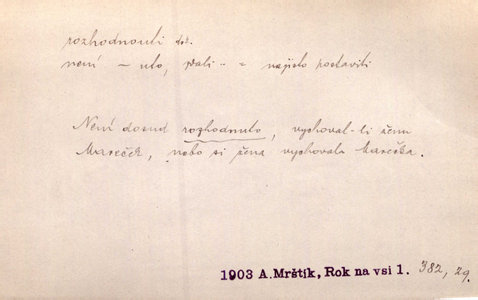 rozhodnouti dok.
není – uto, zdali .. = najisto postaviti
Není dosud rozhodnuto, vychoval-li ženu
Mareček, nebo si žena vychovala Marečka.
1903 A. Mrštík, Rok na vsi 1. 382, 29.